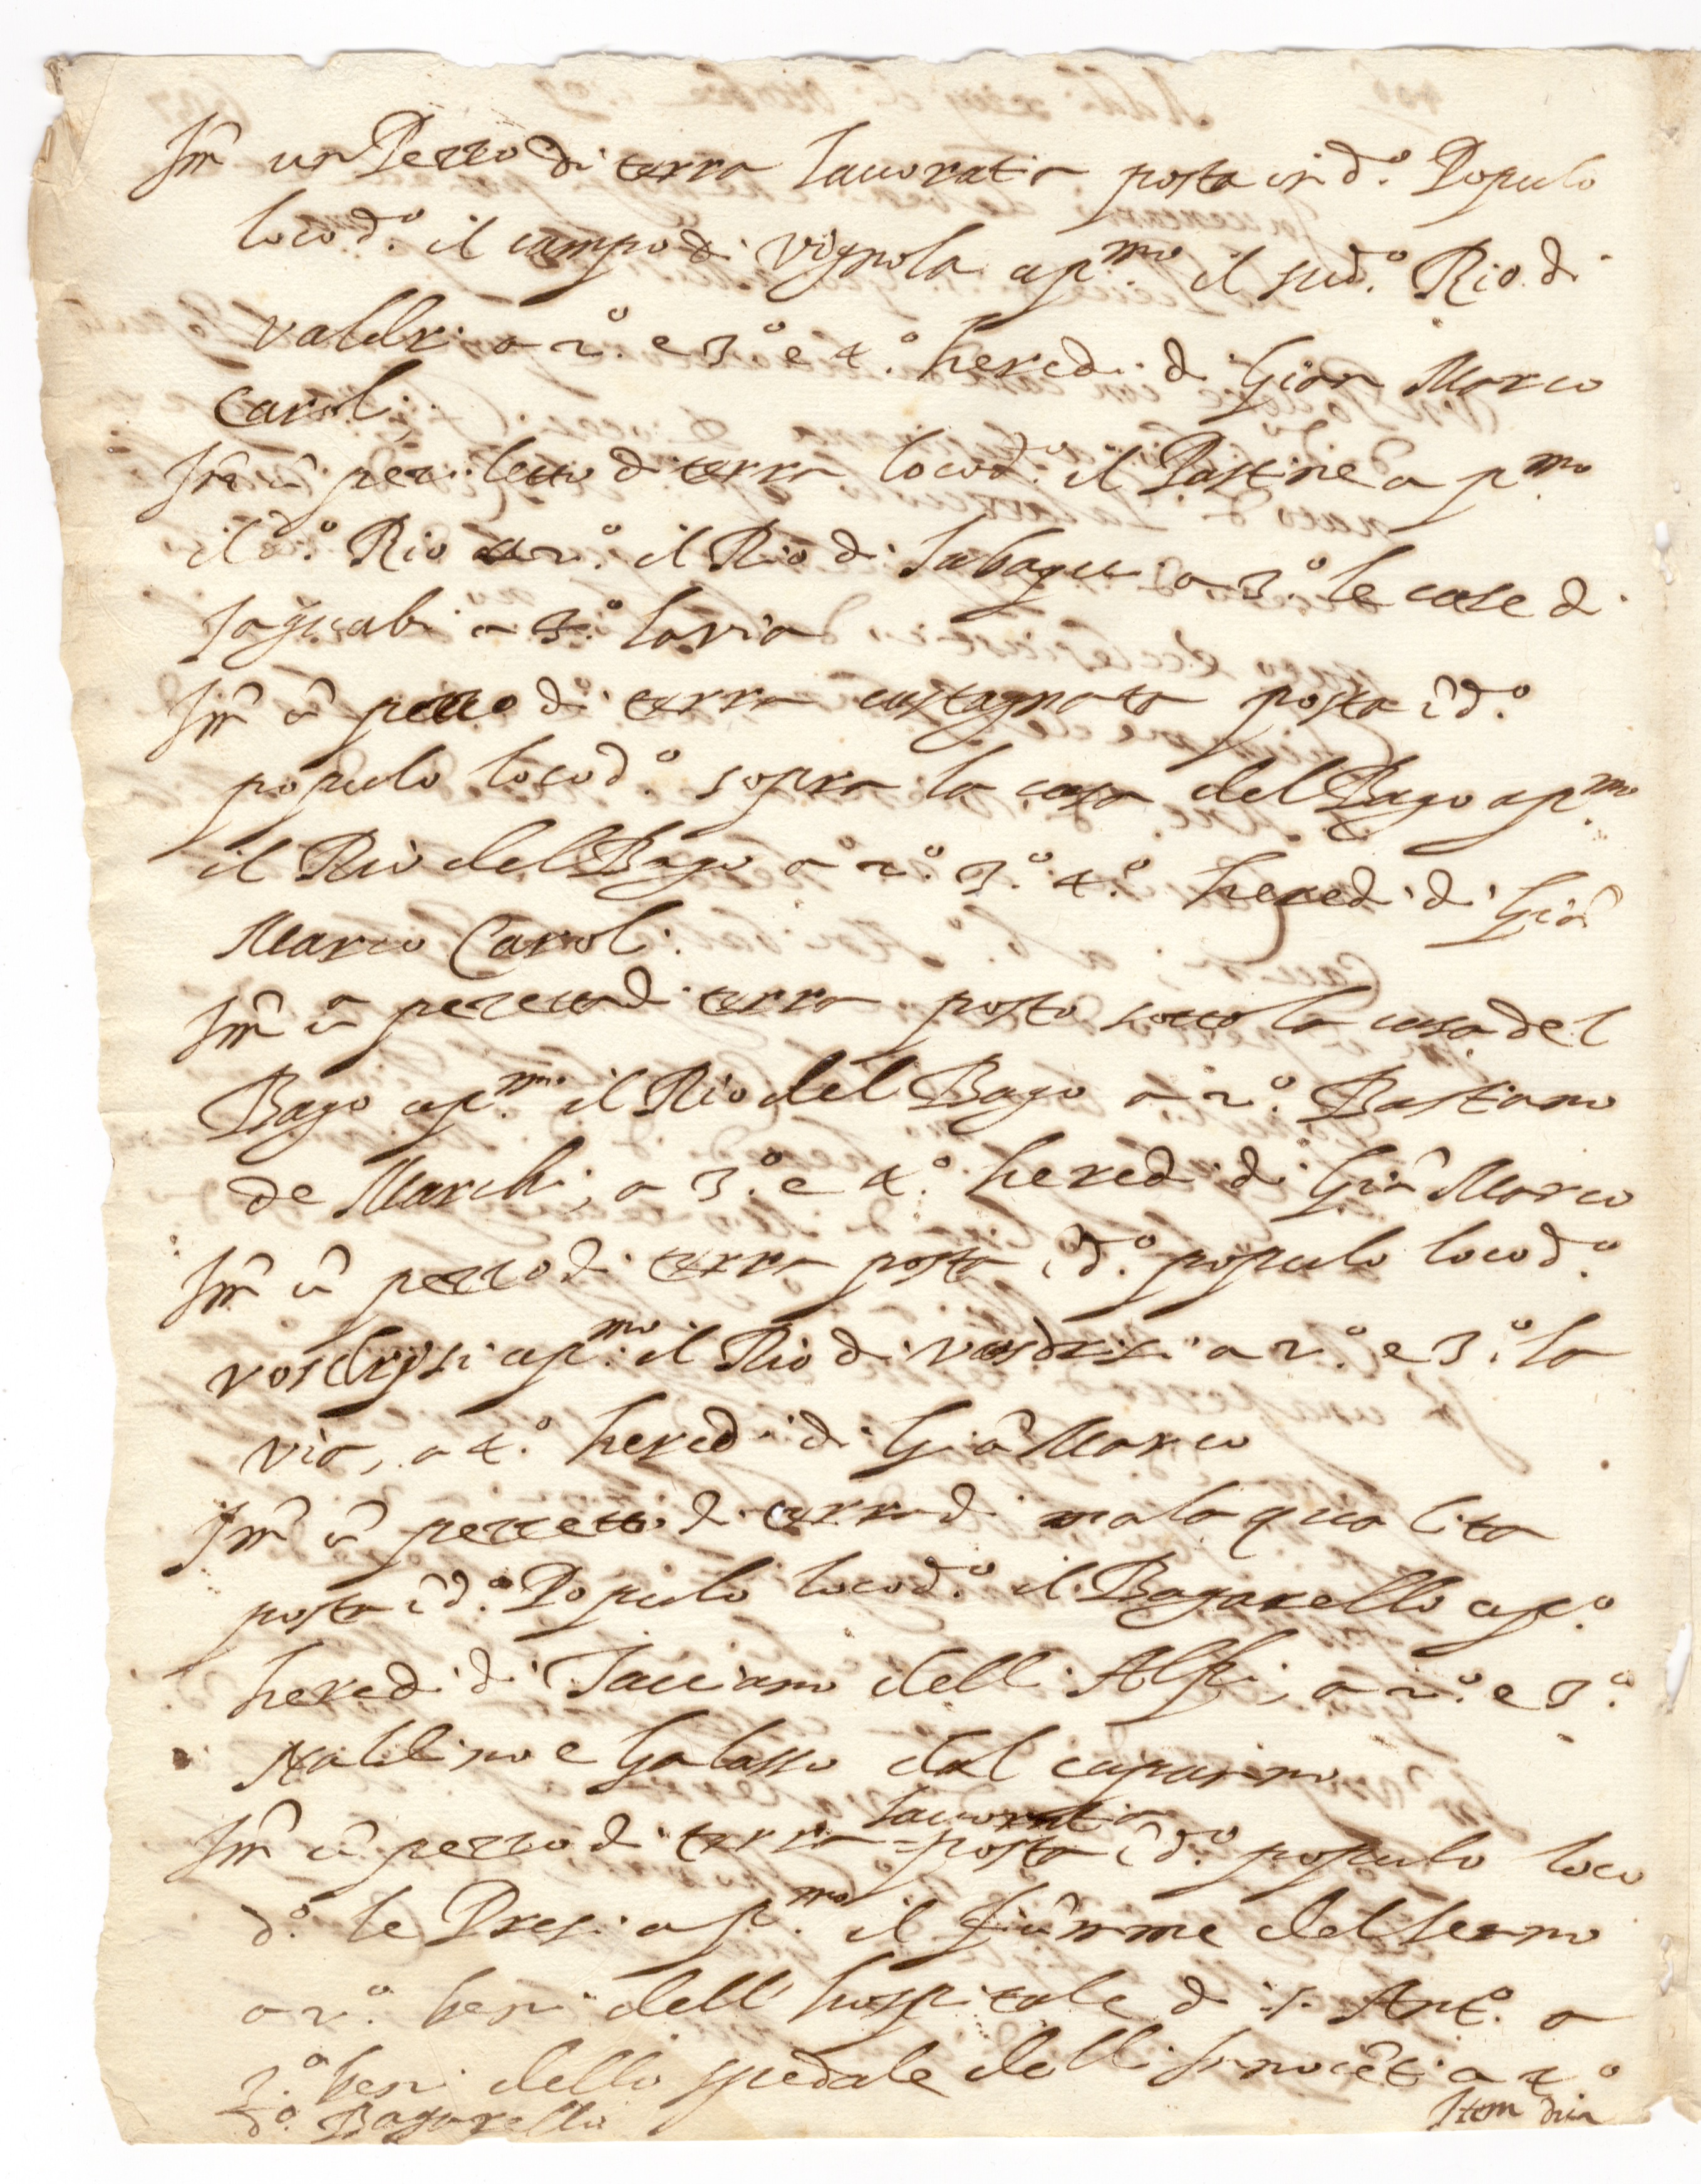 Itm un Pezzo di terra lavoratia posta in d.º Populo
loco d.º il campo di vignola a p.mo il sud.º Rio di
valdri a 2.º e 3.º e 4.º heredi di Gian Marco
Caroli
Itm ũ pezziletto di terra loco d.º il Pastine a p.mo
il d.º Rio a 2.º il Rio di a 3.º le case di
a 3.º la via
Itm ũ pezzo di terra castagnata posta ĩ d.º
populo loco d.º sopra la casa del Bago a p.mo
il Rio del Bago a 2.º 3.º 4.º heredi di Giã
Marco Caroli
Itm ũ pezzetto di terra posto sotto la casa del
Bago a p.mo il Rio del Bago a 2.º Bastiano
de Marchi, a 3.º e 4.º heredi di Giã Marco
Itm ũ pezzo di terra posta ĩ d.º populo loco d.º
a p.mo il Rio di a 2.º e 3.º la
via, a 4.º heredi di Giã Marco
Itm ũ pezzetto di terra di mala qualita
posta ĩ d.º Populo loco d.º il Bagarello a p.º
heredi di delli Alfi, a 2.º e 3.º
Naldino e Galasso dal caparino
lavoratia
Itm ũ pezzo di terra = posta ĩ d.º populo loco
d.º le Presi a p.mo il fiumme del senno
a 2.º beni dell' hospitale di S. Ant.º a
3.º beni dello spedale delli Innocẽti a 4.º
d.º Bagarello
Item dua